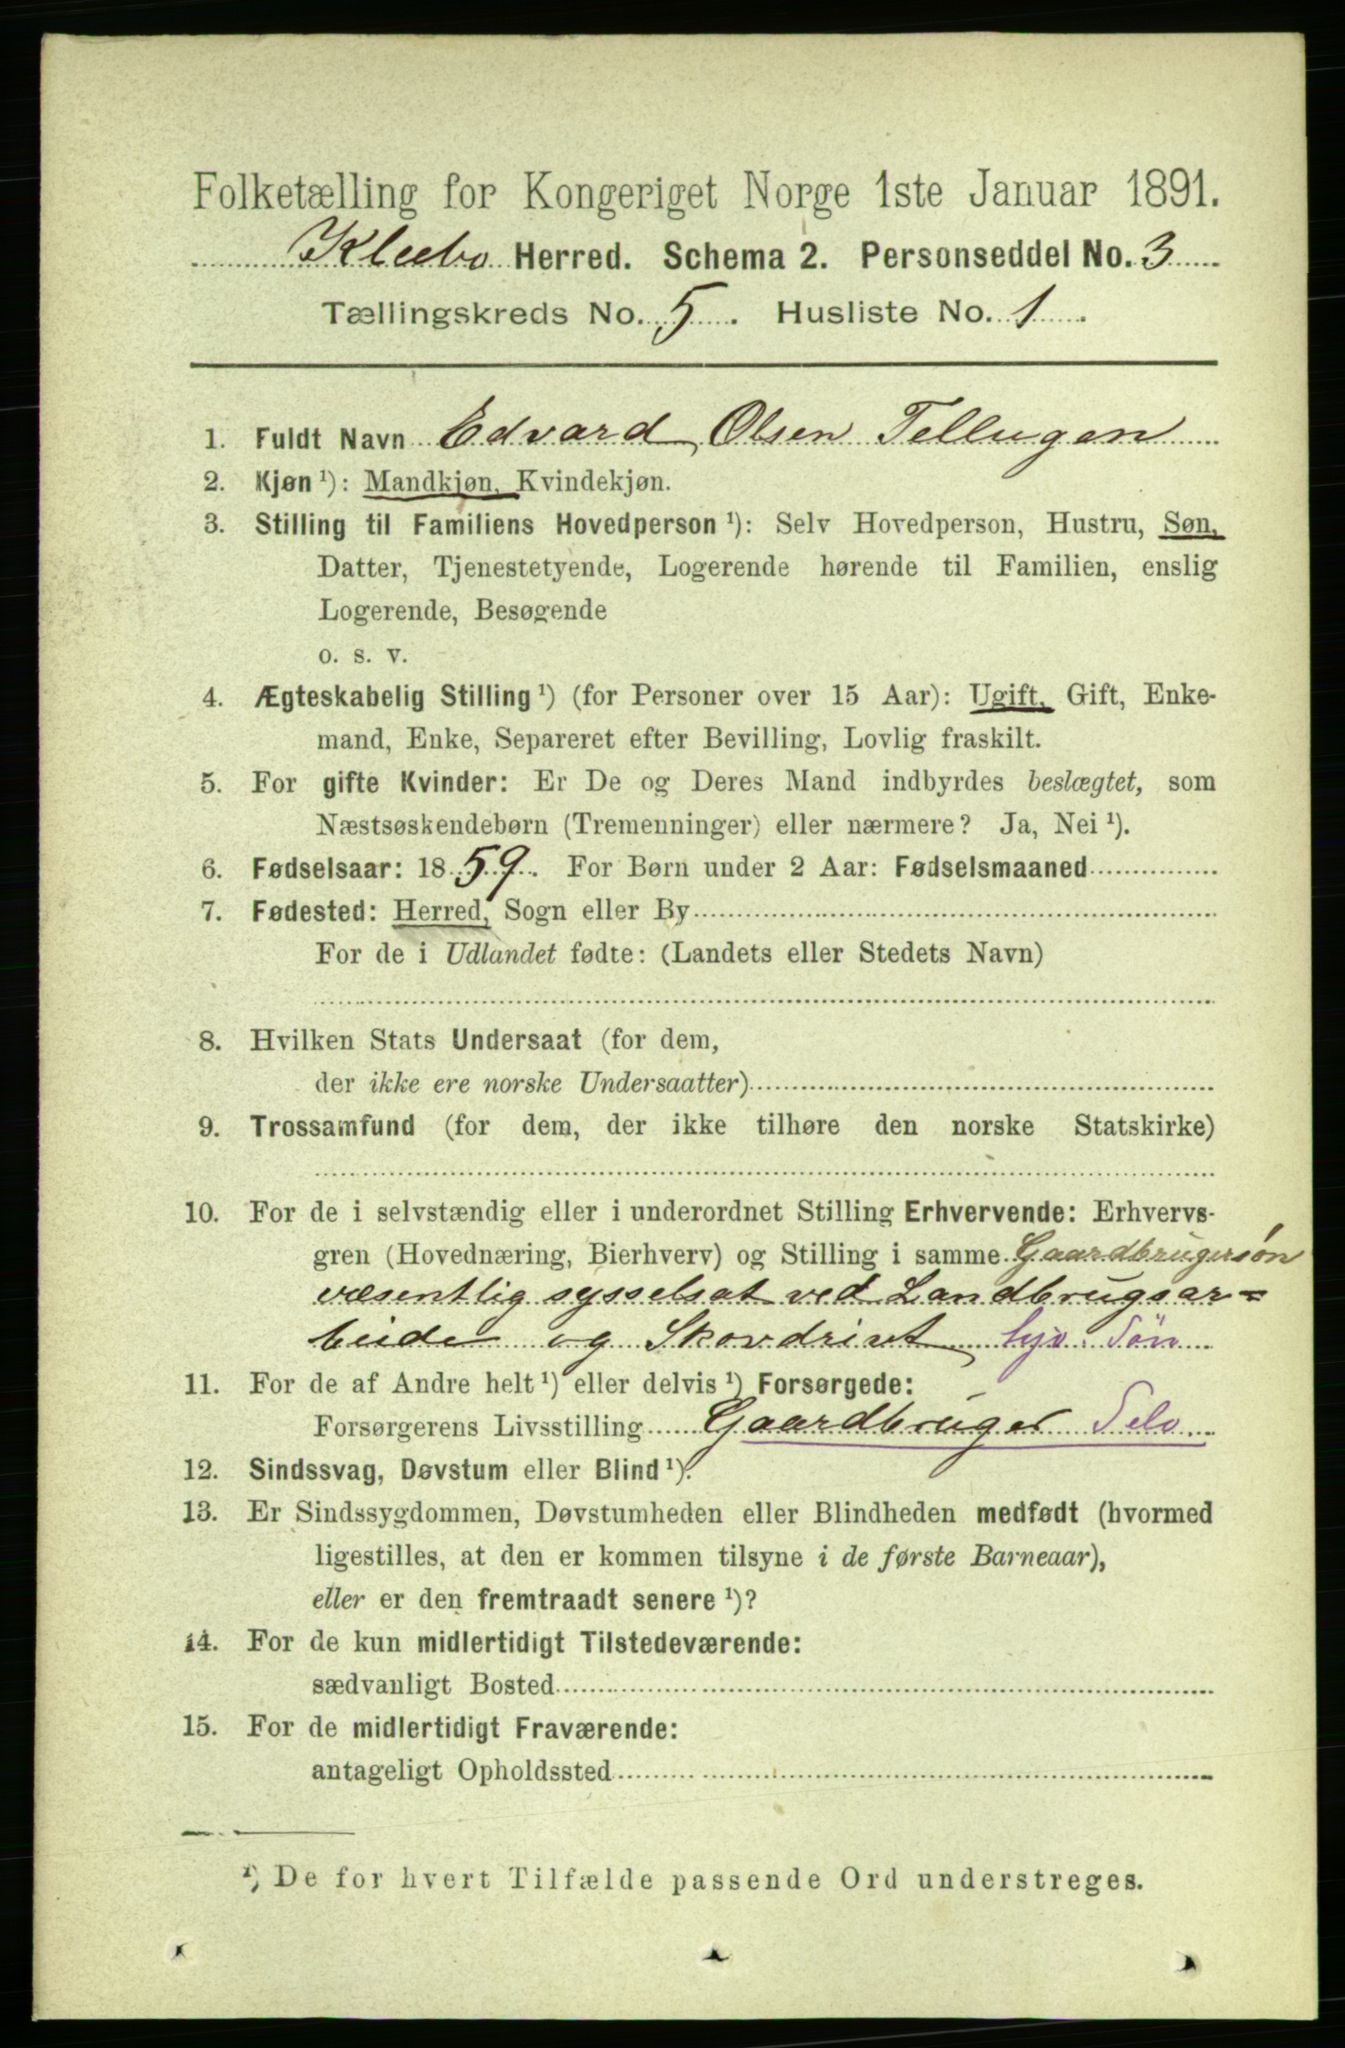 Folketælling for Kongeriget Norge 1ste Januar 1891.
Klæbo Herred. Schema 2. Personseddel No. 3
Tællingskreds No. 5. Husliste No. 1.
1. Fuldt Navn Edvard Olsen Tellugen
2. Kjøn ¹): Mandkjøn, Kvindekjøn.
3. Stilling til Familiens Hovedperson ¹): Selv Hovedperson, Hustru, Søn,
Datter, Tjenestetyende, Logerende hørende til Familien, enslig
Logerende, Besøgende
o. s. v.
4. Ægteskabelig Stilling ¹) (for Personer over 15 Aar): Ugift, Gift, Enke-
mand, Enke, Separeret efter Bevilling, Lovlig fraskilt.
5. For gifte Kvinder: Er De og Deres Mand indbyrdes beslægtet, som
Næstsøskendebørn (Tremenninger) eller nærmere? Ja, Nei ¹).
6. Fødselsaar: 1859. For Børn under 2 Aar: Fødselsmaaned
7. Fødested: Herred, Sogn eller By
For de i Udlandet fødte: (Landets eller Stedets Navn)
8. Hvilken Stats Undersaat (for dem,
der ikke ere norske Undersaatter)
9. Trossamfund (for dem, der ikke tilhøre den norske Statskirke)
10. For de i selvstændig eller i underordnet Stilling Erhvervende: Erhvervs-
gren (Hovednæring, Bierhverv) og Stilling i samme Gaardbrugersøn
væsentlig sysselsat ved Landbrugsar-
beide og Skovdrivt Søn
11. For de af Andre helt ¹) eller delvis ¹) Forsørgede:
Forsørgerens Livsstilling Gaardbruger Selv
12. Sindssvag, Døvstum eller Blind ¹).
13. Er Sindssygdommen, Døvstumheden eller Blindheden medfødt (hvormed
ligestilles, at den er kommen tilsyne i de første Barneaar),
eller er den fremtraadt senere ¹)?
14. For de kun midlertidigt Tilstedeværende:
sædvanligt Bosted
15. For de midlertidigt Fraværende:
antageligt Opholdssted
¹) De for hvert Tilfælde passende Ord understreges.